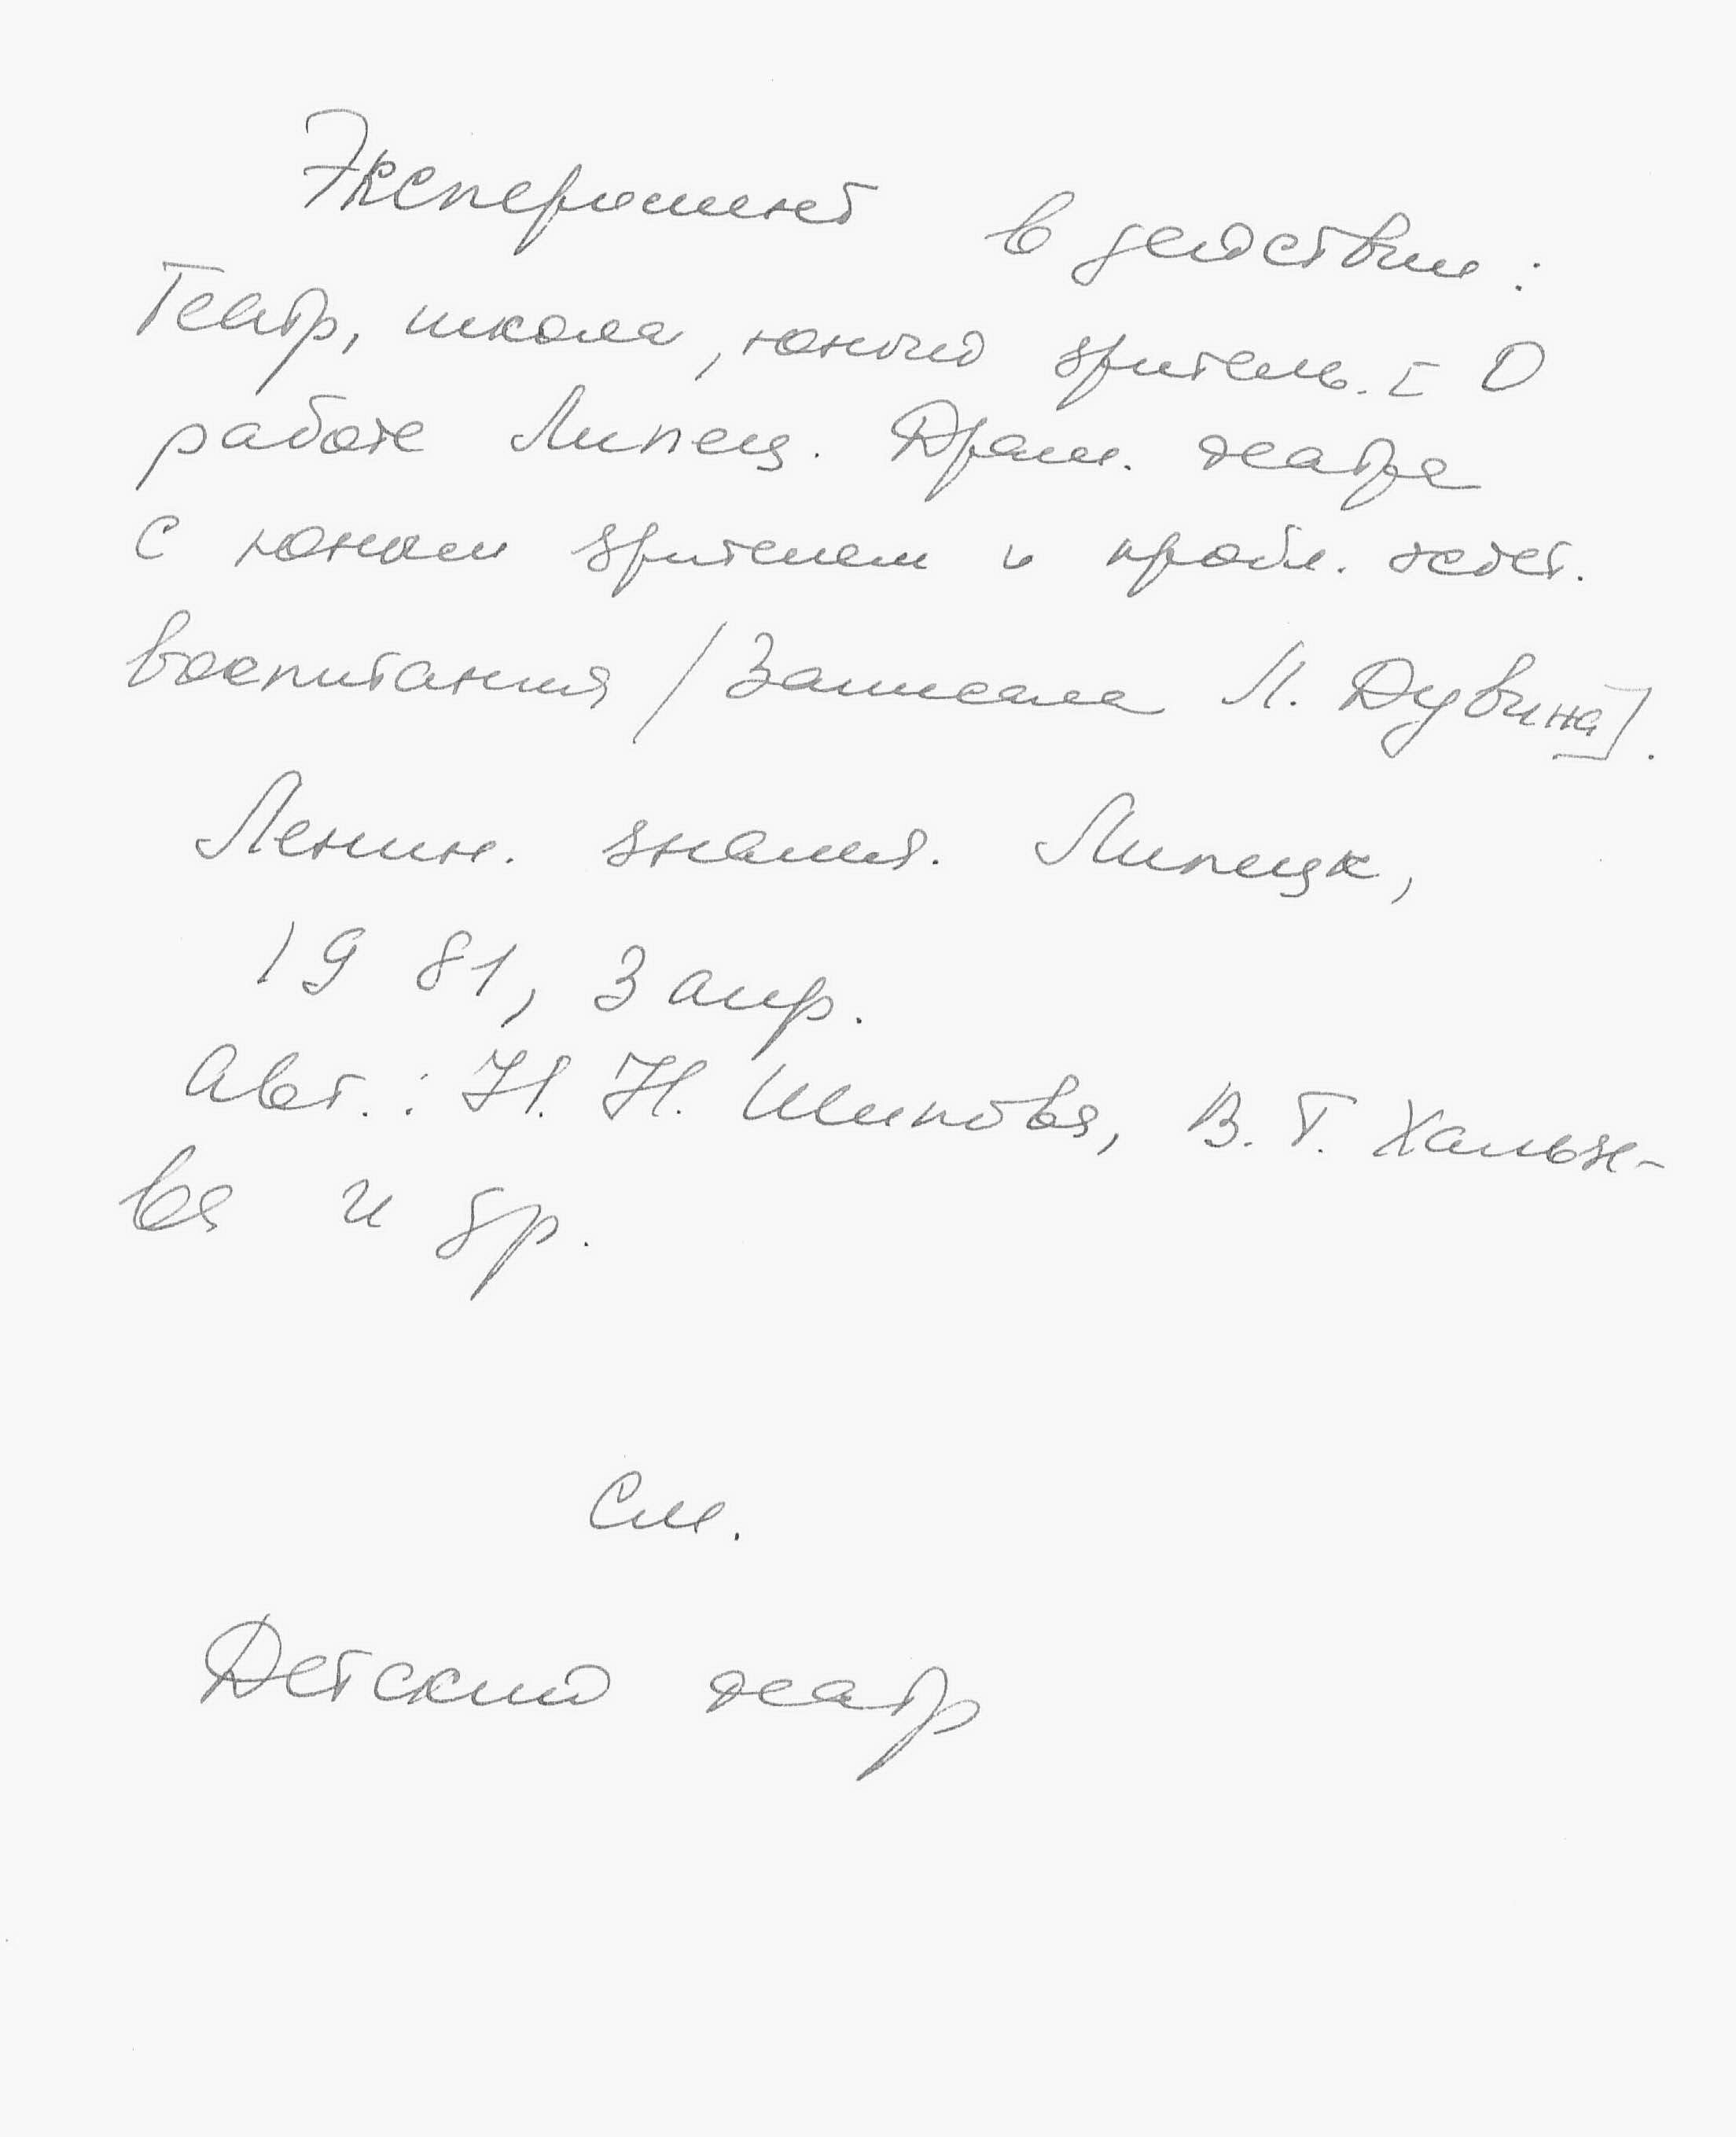 Эксперимент в действии:
Театр, школа, юный зритель. [О
работе Липец. Драм. театра
с юным зрителем и пробл. эстет.
воспитания / Записала Л. Дувина].
Ленин. знамя. Липецк,
1981, 3 апр.
Авт.: Н. Н. Шипова, В. Т. Халызе-
ва и др.
См.
Детский театр